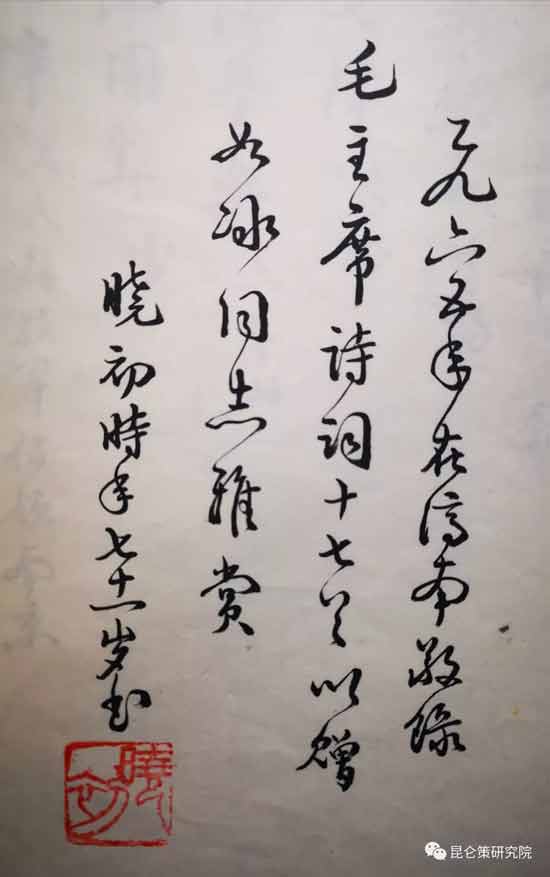 一九六五年在济南敬录
毛主席詩词十七首以赠
如冰同志雅赏
晓初時年七十一岁书
曉初
昆仑策研究院